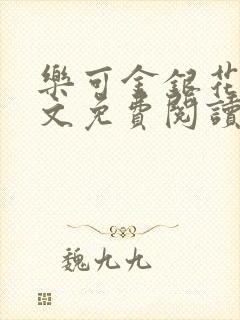 樂可金銀花
文免費閱讀
魏九九